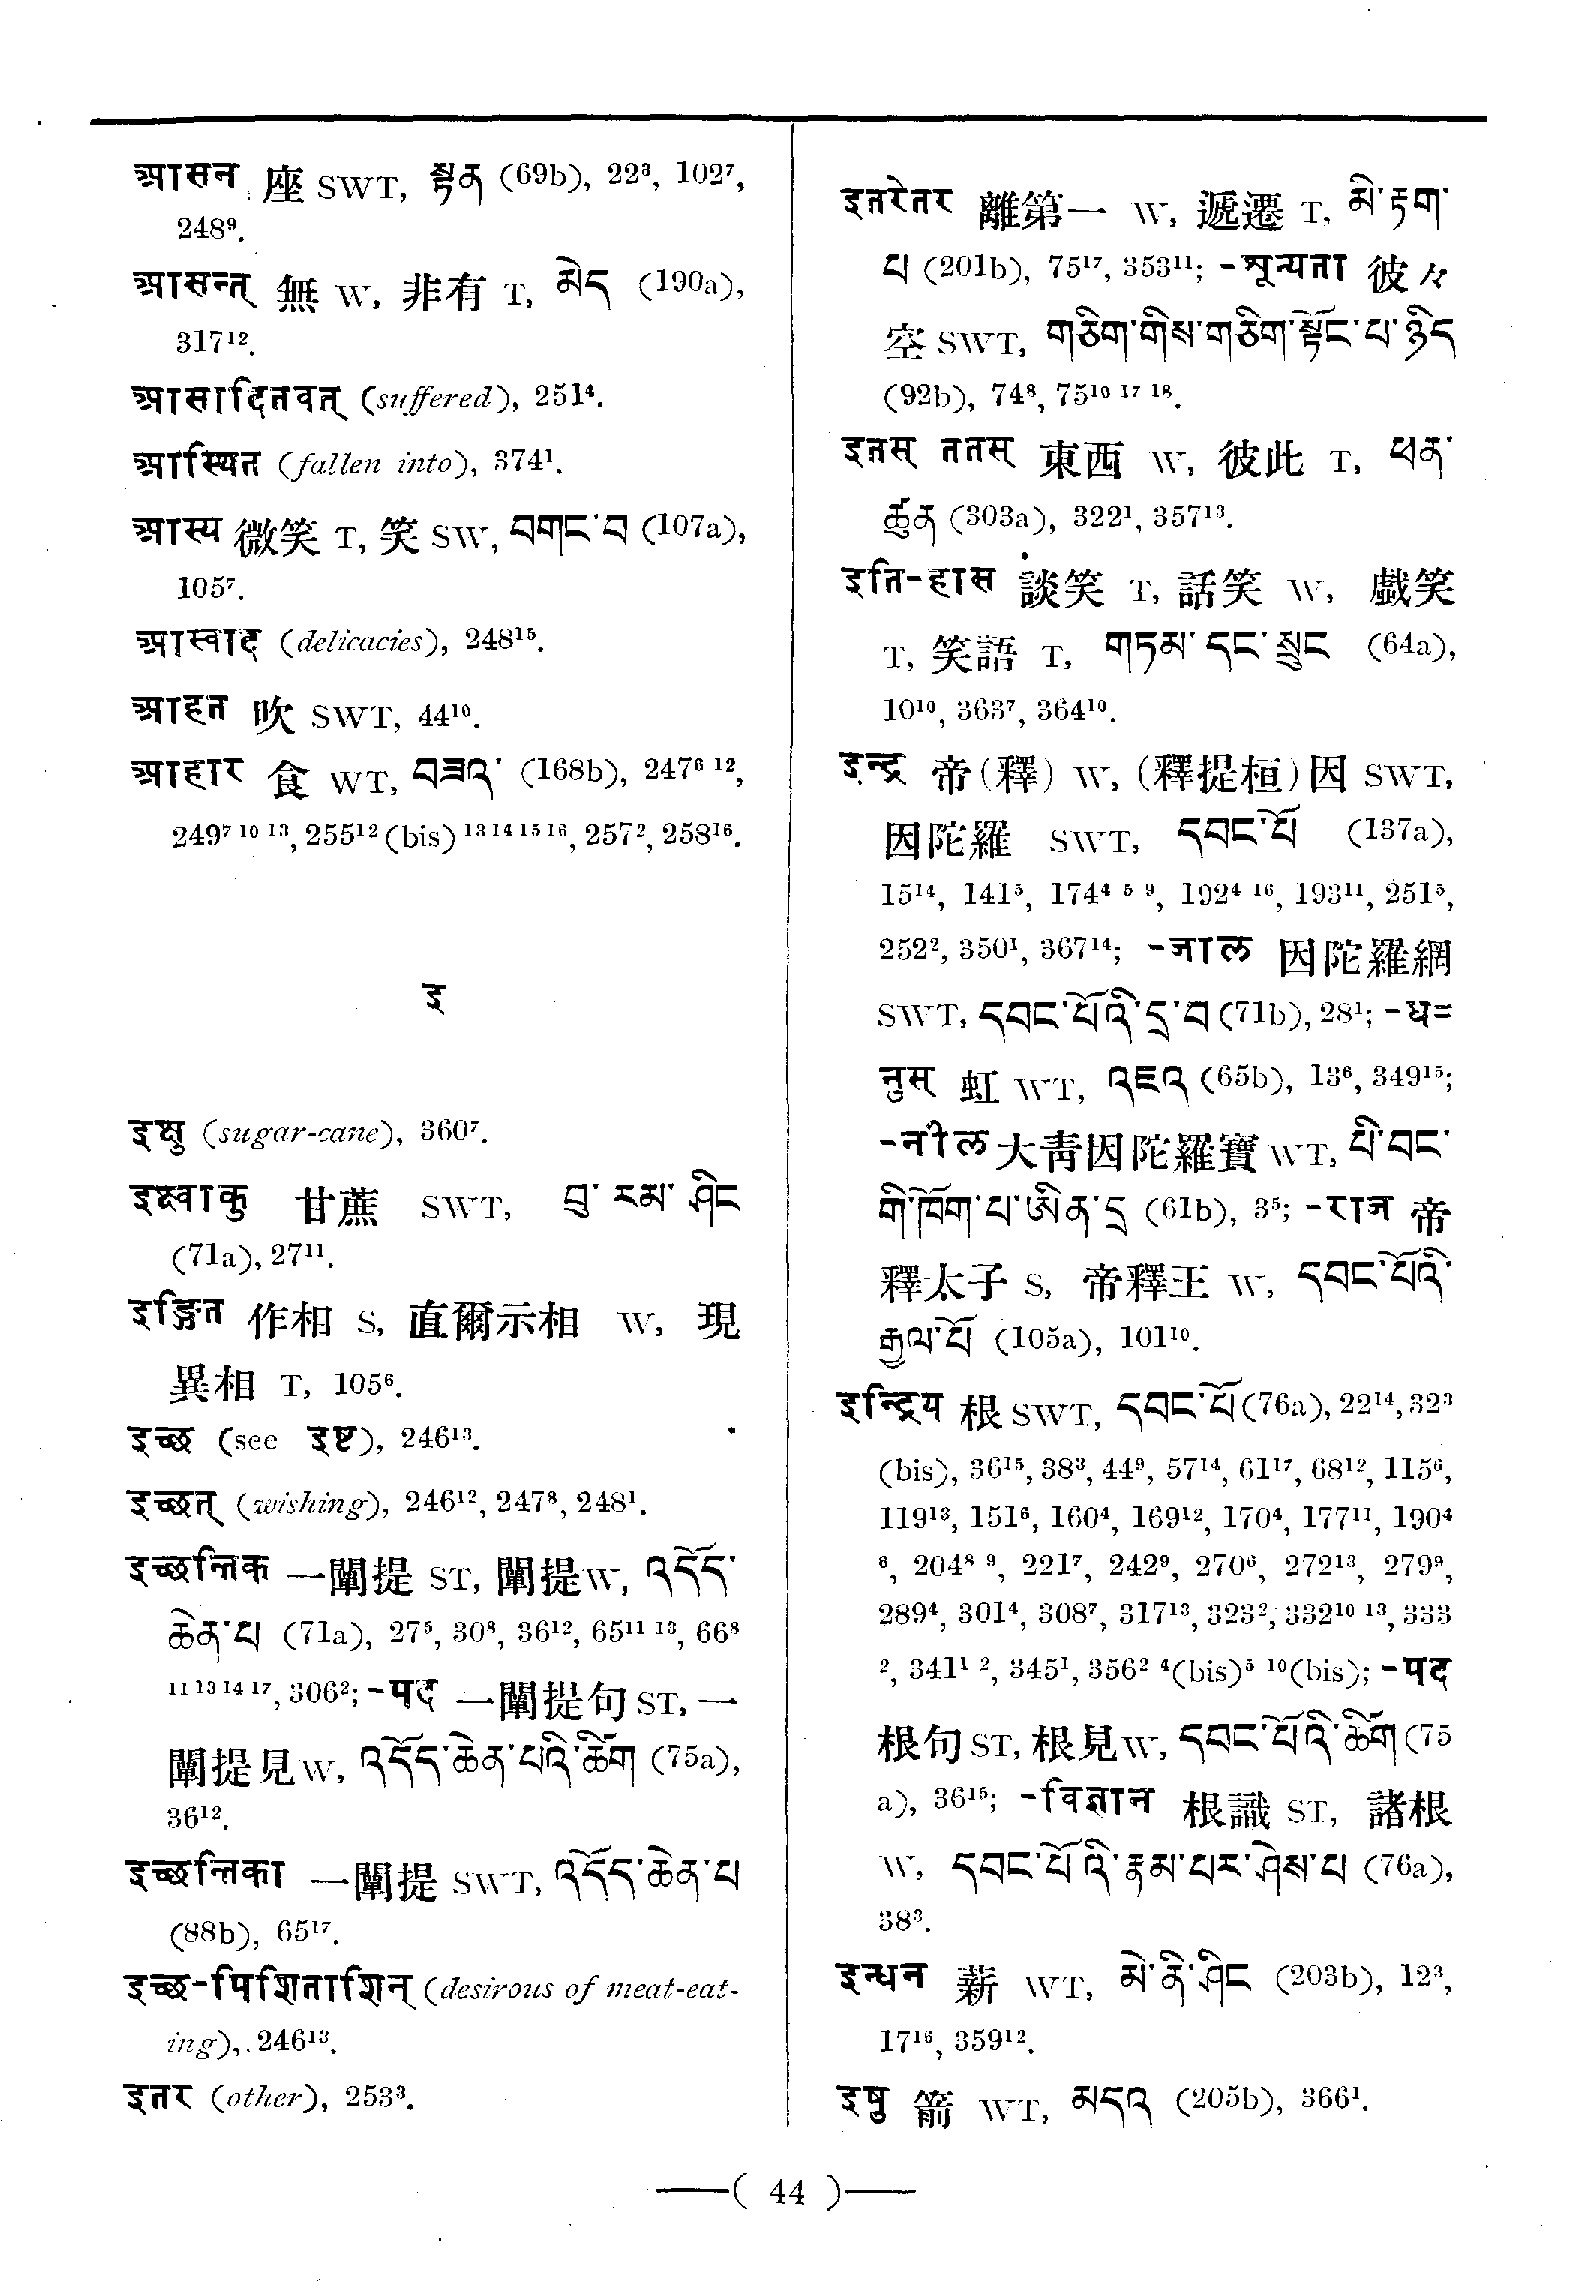 आसन 座 SWT, སྟན (69b), 22³, 102⁷,
248⁹.
आसन्त् 無 W, 非有 T, མེད (190a),
317¹².
आसादितवत् (suffered), 251⁴.
आस्यित (fallen into), 374¹.
आस्य 微笑 T, 笑 SW, བགང་བ (107a),
105⁷.
आस्वाद (delicacies), 248¹⁵.
आहत 吹 SWT, 44¹⁰.
आहार 食 WT, བཟའ་ (168b), 247⁶ ¹²,
249⁷ ¹⁰ ¹³, 255¹² (bis) ¹³ ¹⁴ ¹⁵ ¹⁶, 257², 258¹⁶.
इ
इक्षु (sugar-cane), 360⁷.
इक्ष्वाकु 甘蔗 SWT, བུ་ རམ་ ཤིང
(71a), 27¹¹.
इङ्गित 作相 S, 直爾示相 W, 現
異相 T, 105⁶.
इच्छ (see इष्ट), 246¹³.
इच्छत् (wishing), 246¹², 247⁸, 248¹.
इच्छन्तिक 一闡提 ST, 闡提 W, འདོད་
ཆེན་པ (71a), 27⁵, 30⁸, 36¹², 65¹¹ ¹³, 66⁸
¹¹ ¹³ ¹⁴ ¹⁷, 306²; -पद 一闡提句 ST, 一
闡提見 W, འདོད་ཆེན་པའི་ཚིག (75a),
36¹².
इच्छन्तिका 一闡提 SWT, འདོད་ཆེན་པ
(88b), 65¹⁷.
इच्छ-पिशिताशिन् (desirous of meat-eat-
ing), 246¹³.
इतर (other), 253³.
इतरेतर 離第一 W, 遞遷 T, མི་རྟག་
པ (201b), 75¹⁷, 353¹¹; -शून्यता 彼々
空 SWT, གཅིག་གིས་གཅིག་སྟོང་པ་ཉིད
(92b), 74⁸, 75¹⁰ ¹⁷ ¹⁸.
इतस् ततस् 東西 W, 彼此 T, ཕན་
ཚུན (303a), 322¹, 357¹³.
इति-हास 談笑 T, 話笑 W, 戲笑
T, 笑語 T, གཏམ་ དང་ སྲུང (64a),
10¹⁰, 363⁷, 364¹⁰.
इन्द्र 帝(釋) W, (釋提桓)因 SWT,
因陀羅 SWT, དབང་པོ (137a),
15¹⁴, 141⁵, 174⁴ ⁵ ⁹, 192⁴ ¹⁶, 193¹¹, 251⁵,
252², 350¹, 367¹⁴; -जाल 因陀羅網
SWT, དབང་པོའི་དྲ་བ (71b), 28¹; -ध=
नुस् 虹 WT, འཇའ (65b), 13⁶, 349¹⁵;
-नील 大靑因陀羅寶 WT, པི་བང་
གི་ཁོག་པ་ཨིན་དྲ (61b), 3⁵; -राज 帝
釋太子 S, 帝釋王 W, དབང་པོའི་
རྒྱལ་པོ (105a), 101¹⁰.
इन्द्रिय 根 SWT, དབང་པོ (76a), 22¹⁴, 32³
(bis), 36¹⁵, 38³, 44⁹, 57¹⁴, 61¹⁷, 68¹², 115⁶,
119¹³, 151⁶, 160⁴, 169¹², 170⁴, 177¹¹, 190⁴
⁶, 204⁸ ⁹, 221⁷, 242⁹, 270⁶, 272¹³, 279⁹,
289⁴, 301⁴, 308⁷, 317¹³, 323², 332¹⁰ ¹³, 333
², 341¹ ², 345¹, 356² ⁴(bis)⁵ ¹⁰(bis); -पद
根句 ST, 根見 W, དབང་པོའི་ཚིག (75
a), 36¹⁵; -विज्ञान 根識 ST, 諸根
W, དབང་པོའི་རྣམ་པར་ཤེས་པ (76a),
38³.
इन्धन 薪 WT, མེ་ནི་ཤིང (203b), 12³,
17¹⁶, 359¹².
इषु 箭 WT, མདའ (205b), 366¹.
—( 44 )—